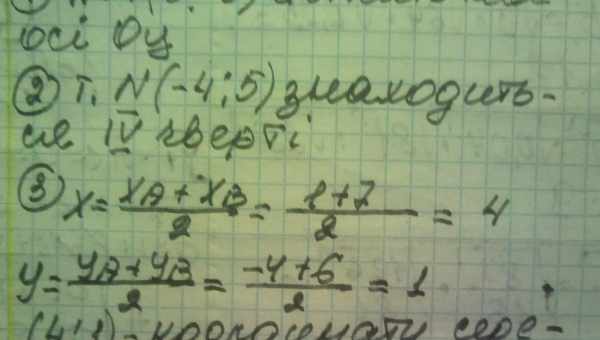 осі Оу
② т. N(-4; 5) знаходить-
ся IV чверті
③ x = (xA + xB)/2 = (1+7)/2 = 4
y = (yA + yB)/2 = (-4+6)/2 = 1
(4; 1) - координати